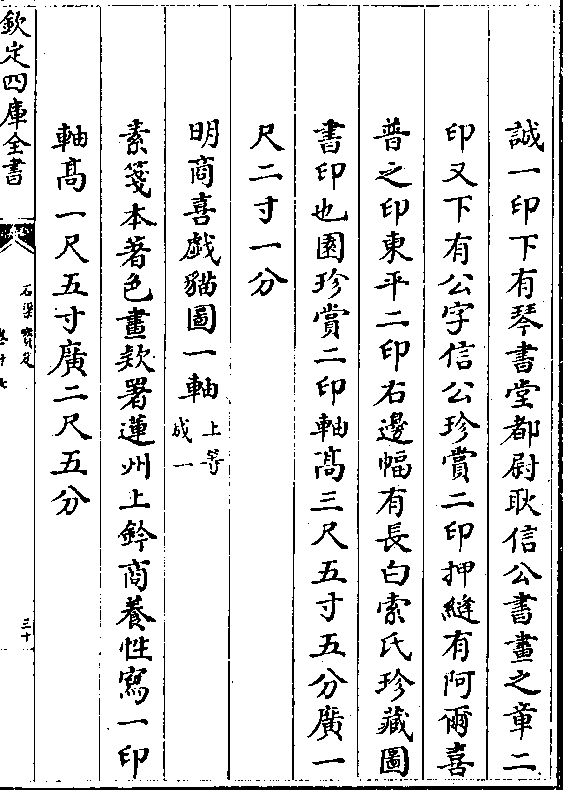 誠一印下有琴書堂都尉耿信公書畫之章二
印又下有公字信公珍賞二印押縫有阿爾喜
普之印東平二印右邊幅有長白索氏珍藏圖
書印也園珍賞二印軸髙三尺五寸五分廣一
尺二寸一分
明商喜戯猫圖一軸上等
成一
素箋本著色畫欵署蓮州上鈐商養性寫一印
軸髙一尺五寸廣二尺五分
欽定四庫全書
石渠寶笈
三十